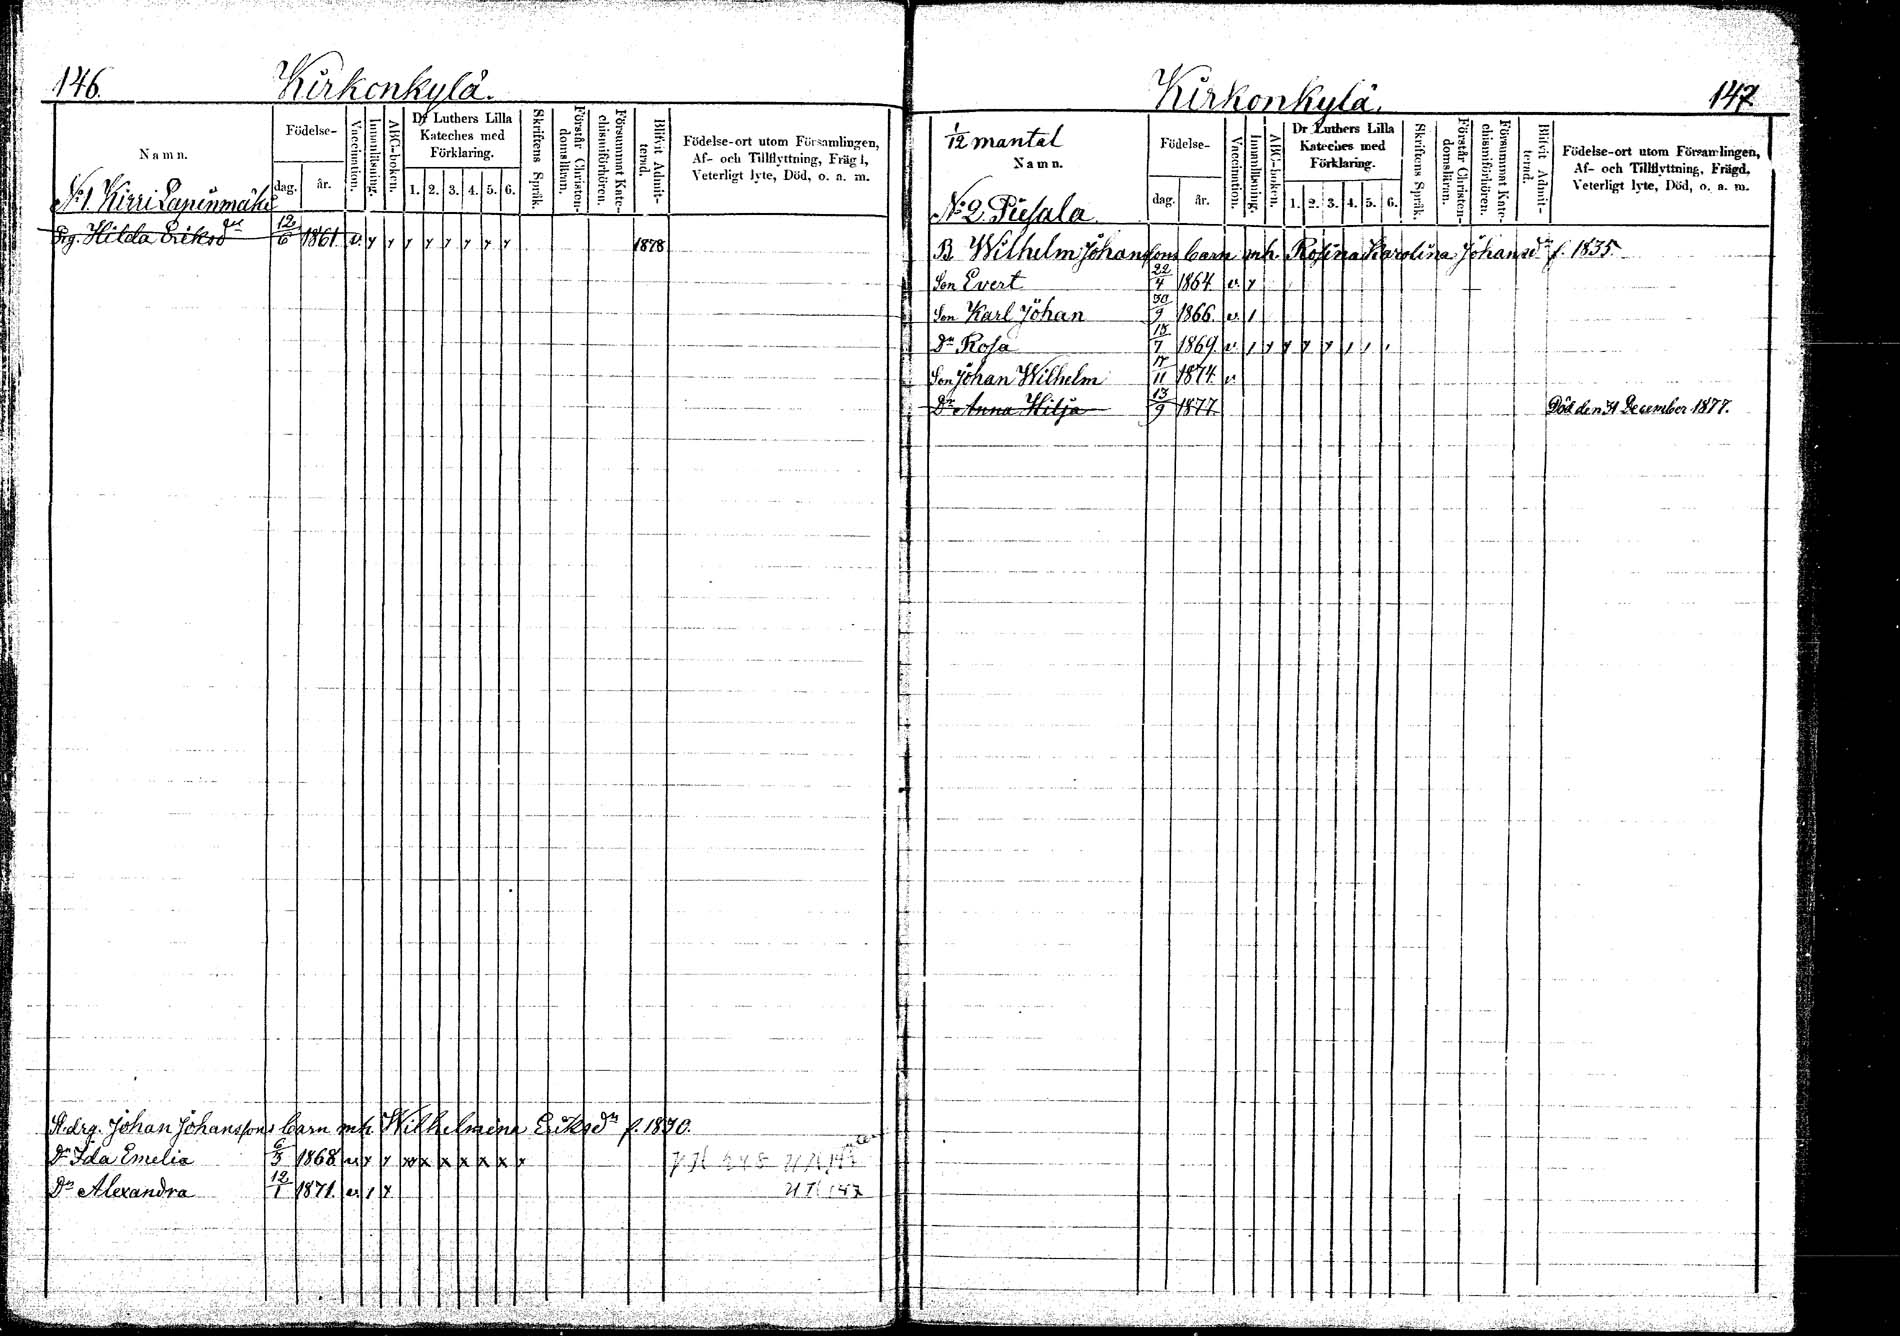 146.
Kirkonkylä.
Namn.
Födelse-
dag.
år.
Vaccination.
Innanläsning.
ABC-boken.
Dr Luthers Lilla
Kateches med
Förklaring.
1. 2. 3. 4. 5. 6.
Skriftens Språk.
Förstår Christen-
domsläran.
Försummat Kate-
chismiförhören.
Blifvit Admit-
terad.
Födelse-ort utom Församlingen,
Af- och Tillflyttning, Frägd,
Veterligt lyte, Död, o. a. m.
No 1. Kirri Lapinmäki
Drg. Hilda Eriksdr 12/6 1861 v. y y y y y y y y 1878
St.drg. Johan Johanssons barn mh. Wilhelmina Eriksdr f. 1830.
Dr Ida Emelia 6/3 1868 v. y y x x x x x x x
Dr Alexandra 12/1 1871 v. 1 y
147
Kirkonkylä.
147
1/12 mantal
Namn.
Födelse-
dag.
år.
Vaccination.
Innanläsning.
ABC-boken.
Dr Luthers Lilla
Kateches med
Förklaring.
1. 2. 3. 4. 5. 6.
Skriftens Språk.
Förstår Christen-
domsläran.
Försummat Kate-
chismiförhören.
Blifvit Admit-
terad.
Födelse-ort utom Församlingen,
Af- och Tillflyttning, Frägd,
Veterligt lyte, Död, o. a. m.
No 2. Piesala
B. Wilhelm Johanssons barn mh. Rosina Karolina Johansdr f. 1835.
Son Evert 22/4 1864 v. y
Son Karl Johan 30/9 1866 v. 1
Dr Rosa 18/7 1869 v. 1 y y y y 1 1 1
Son Johan Wilhelm 17/11 1874 v.
Dr Anna Hilja 13/9 1877 Död den 31 December 1877.